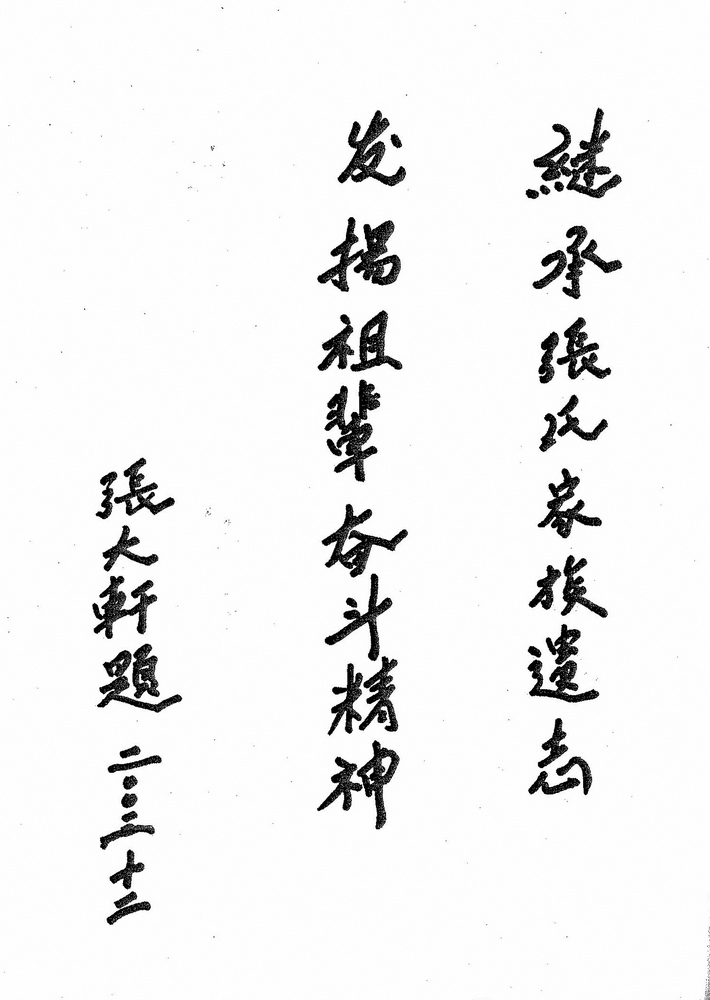 継承張氏家族遺志
发揚祖輩奋斗精神
張大軒題 二〇〇三 十二